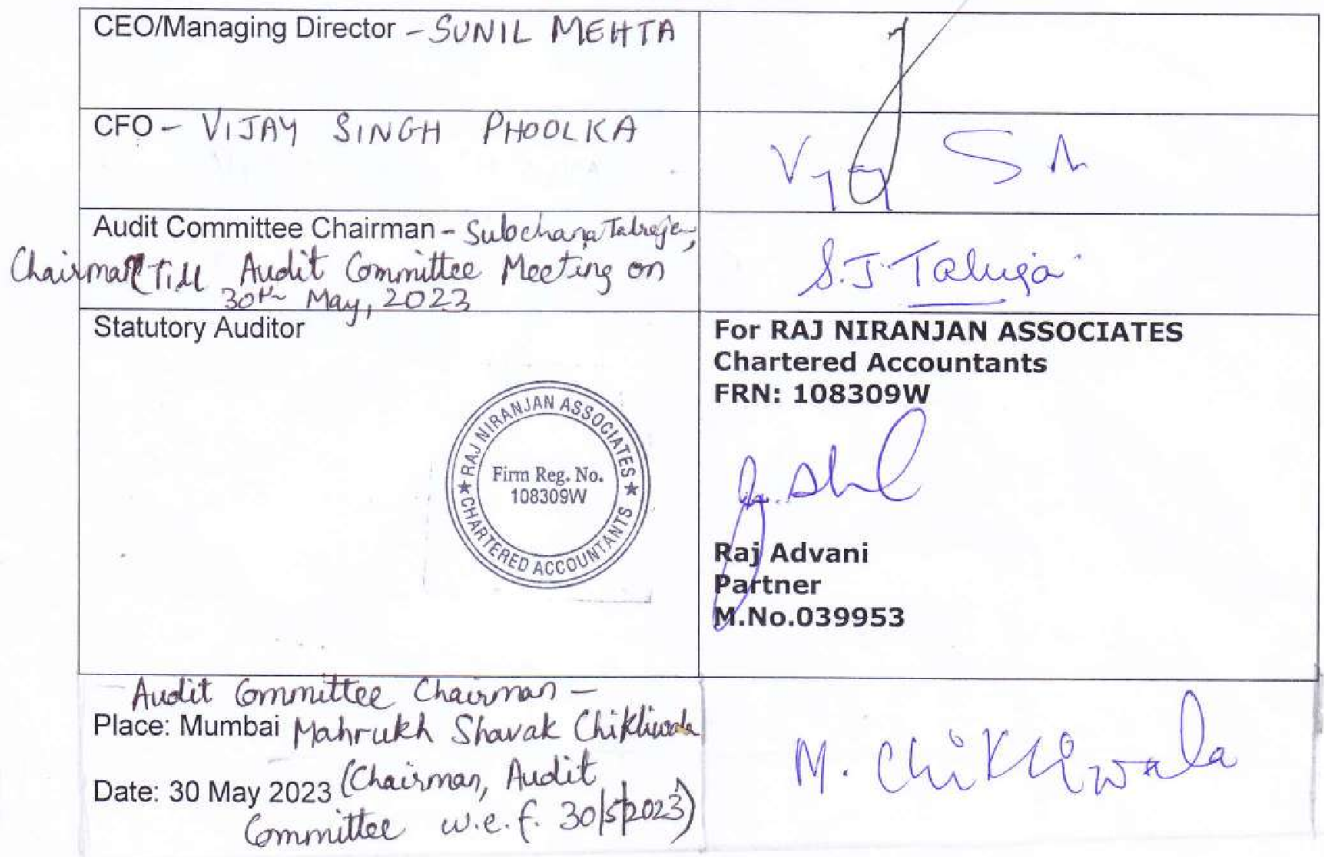 CEO/Managing Director - SUNIL MEHTA
CFO - VIJAY SINGH PHOOLKA
Audit Committee Chairman - Subchana Talreja,
Chairman Till Audit Committee Meeting on
30th May, 2023
S.J. Talreja
Statutory Auditor
For RAJ NIRANJAN ASSOCIATES
Chartered Accountants
FRN: 108309W
★ RAJ NIRANJAN ASSOCIATES ★
CHARTERED ACCOUNTANTS
Firm Reg. No.
108309W
Raj Advani
Partner
M.No.039953
Audit Committee Chairman -
Place: Mumbai Mahrukh Shavak Chikliwala
Date: 30 May 2023 (Chairman, Audit
Committee w.e.f. 30/5/2023)
M. Chikliwala